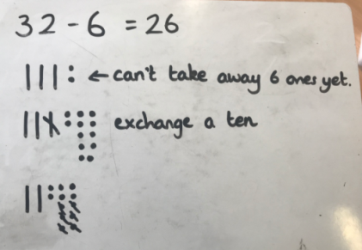 32 - 6 = 26
← can't take away 6 ones yet.
exchange a ten